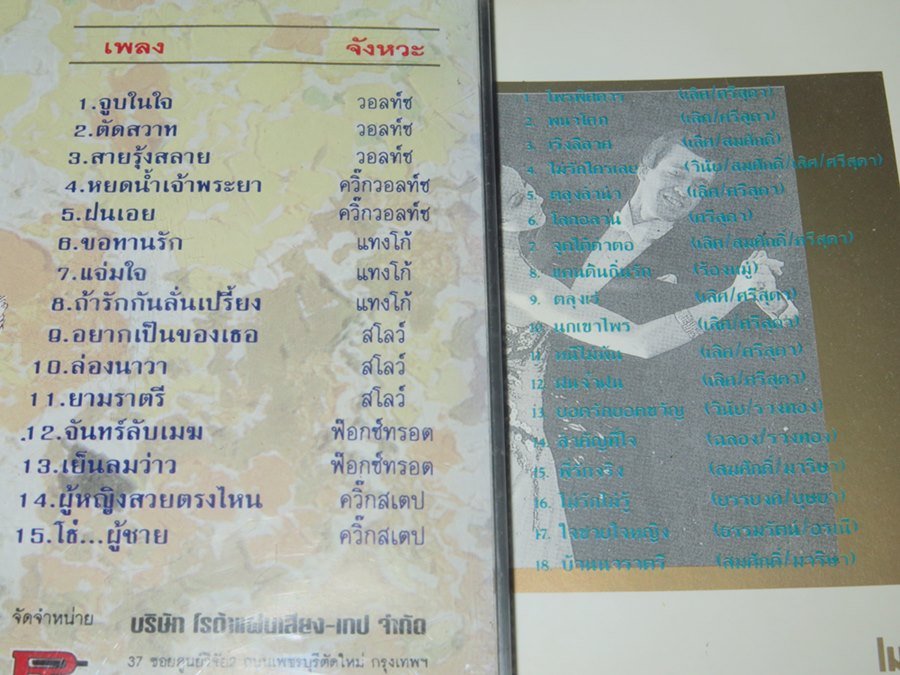 เพลง จังหวะ
1.จูบในใจ วอลท์ช
2.ตัดสวาท วอลท์ช
3.สายรุ้งสลาย วอลท์ช
4.หยดน้ำเจ้าพระยา ควิ๊กวอลท์ช
5.ฝนเอย ควิ๊กวอลท์ช
6.ขอทานรัก แทงโก้
7.แจ่มใจ แทงโก้
8.ถ้ารักกันลั่นเปรี้ยง แทงโก้
9.อยากเป็นของเธอ สโลว์
10.ล่องนาวา สโลว์
11.ยามราตรี สโลว์
12.จันทร์ลับเมฆ ฟ๊อกซ์ทรอต
13.เย็นลมว่าว ฟ๊อกซ์ทรอต
14.ผู้หญิงสวยตรงไหน ควิ๊กสเตป
15.โธ่...ผู้ชาย ควิ๊กสเตป
จัดจำหน่าย บริษัท โรต้าแผ่นเสียง-เทป จำกัด
37 ซอยศูนย์วิจัย2 ถนนเพชรบุรีตัดใหม่ กรุงเทพฯ
1. ไพรพิสดาร (เลิศ/ศรีสุดา)
2. (เลิศ/ศรีสุดา)
3. เริงลีลาศ (เลิศ/สมศักดิ์)
4. ไม่รักใครเลย (วินัย/สมศักดิ์/เลิศ/ศรีสุดา)
5. ตลุงลาน่า (เลิศ/ศรีสุดา)
6. (ศรีสุดา)
7. จุดไต้ตำตอ (เลิศ/สมศักดิ์/ศรีสุดา)
8. แดนดินถิ่นรัก (ร้องหมู่)
9. (เลิศ/ศรีสุดา)
10. นกเขาไพร (เลิศ/ศรีสุดา)
11. (เลิศ/ศรีสุดา)
12. ฝนจ๋าฝน (เลิศ/ศรีสุดา)
13. ยอดรักยอดขวัญ (วินัย/รวงทอง)
14. สำคัญที่ใจ (ฉลอง/รวงทอง)
15. พี่รักจริง (สมศักดิ์/มาริษา)
16. ไม่รักไม่รู้ (บุษยา)
17. ใจชายใจหญิง
18. บ้านนาราตรี (สมศักดิ์/มาริษา)